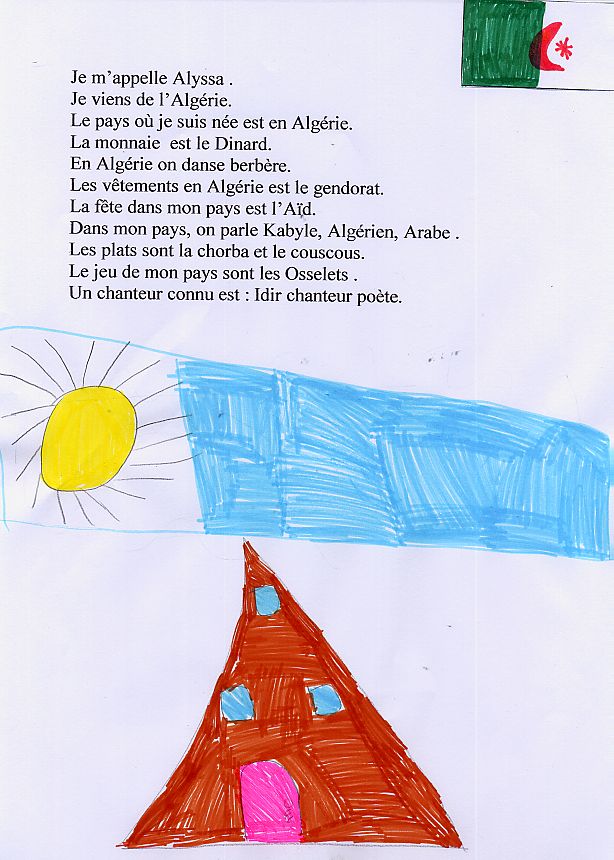 Je m'appelle Alyssa .
Je viens de l'Algérie.
Le pays où je suis née est en Algérie.
La monnaie  est le Dinard.
En Algérie on danse berbère.
Les vêtements en Algérie est le gendorat.
La fête dans mon pays est l'Aïd.
Dans mon pays, on parle Kabyle, Algérien, Arabe .
Les plats sont la chorba et le couscous.
Le jeu de mon pays sont les Osselets .
Un chanteur connu est : Idir chanteur poète.